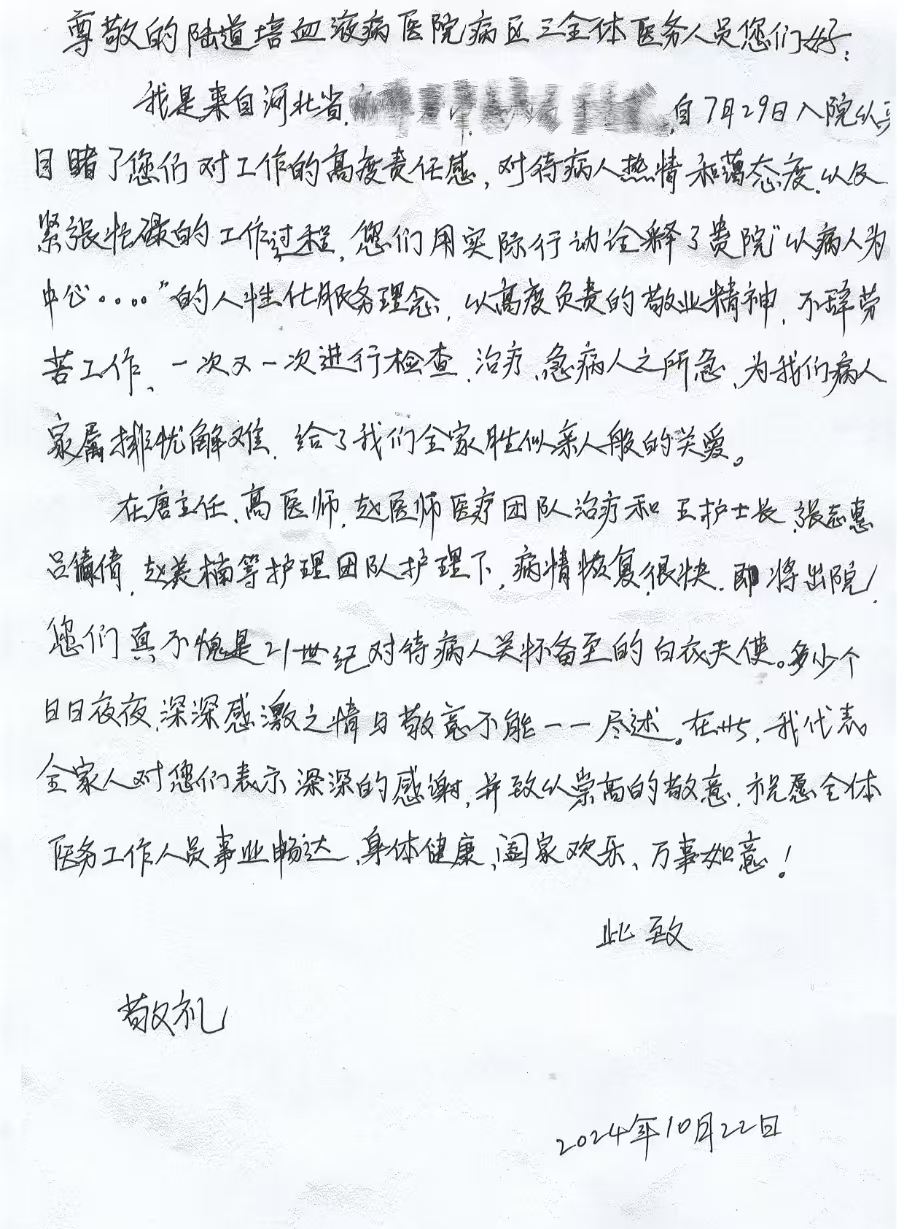 尊敬的陆道培血液病医院病区三全体医务人员您们好:
我是来自河北省, 自7月29日入院以来
目睹了您们对工作的高度责任感,对待病人热情和蔼态度,以及
紧张忙碌的工作过程,您们用实际行动诠释了贵院“以病人为
中心....”的人性化服务理念,以高度负责的敬业精神,不辞劳
苦工作、一次又一次进行检查、治疗、急病人之所急、为我们病人
家属排忧解难,给了我们全家胜似亲人般的关爱。
在唐主任、高医师,赵医师医疗团队治疗和王护士长、张志惠
吕倩倩,赵美楠等护理团队护理下,病情恢复很快.即将出院,
您们真不愧是21世纪对待病人关怀备至的白衣天使。多少个
日日夜夜,深深感激之情与敬意不能一一尽述。在此,我代表
全家人对您们表示深深的感谢,并致以崇高的敬意,祝愿全体
医务工作人员事业畅达、身体健康、阖家欢乐、万事如意!
此致
敬礼
2024年10月22日